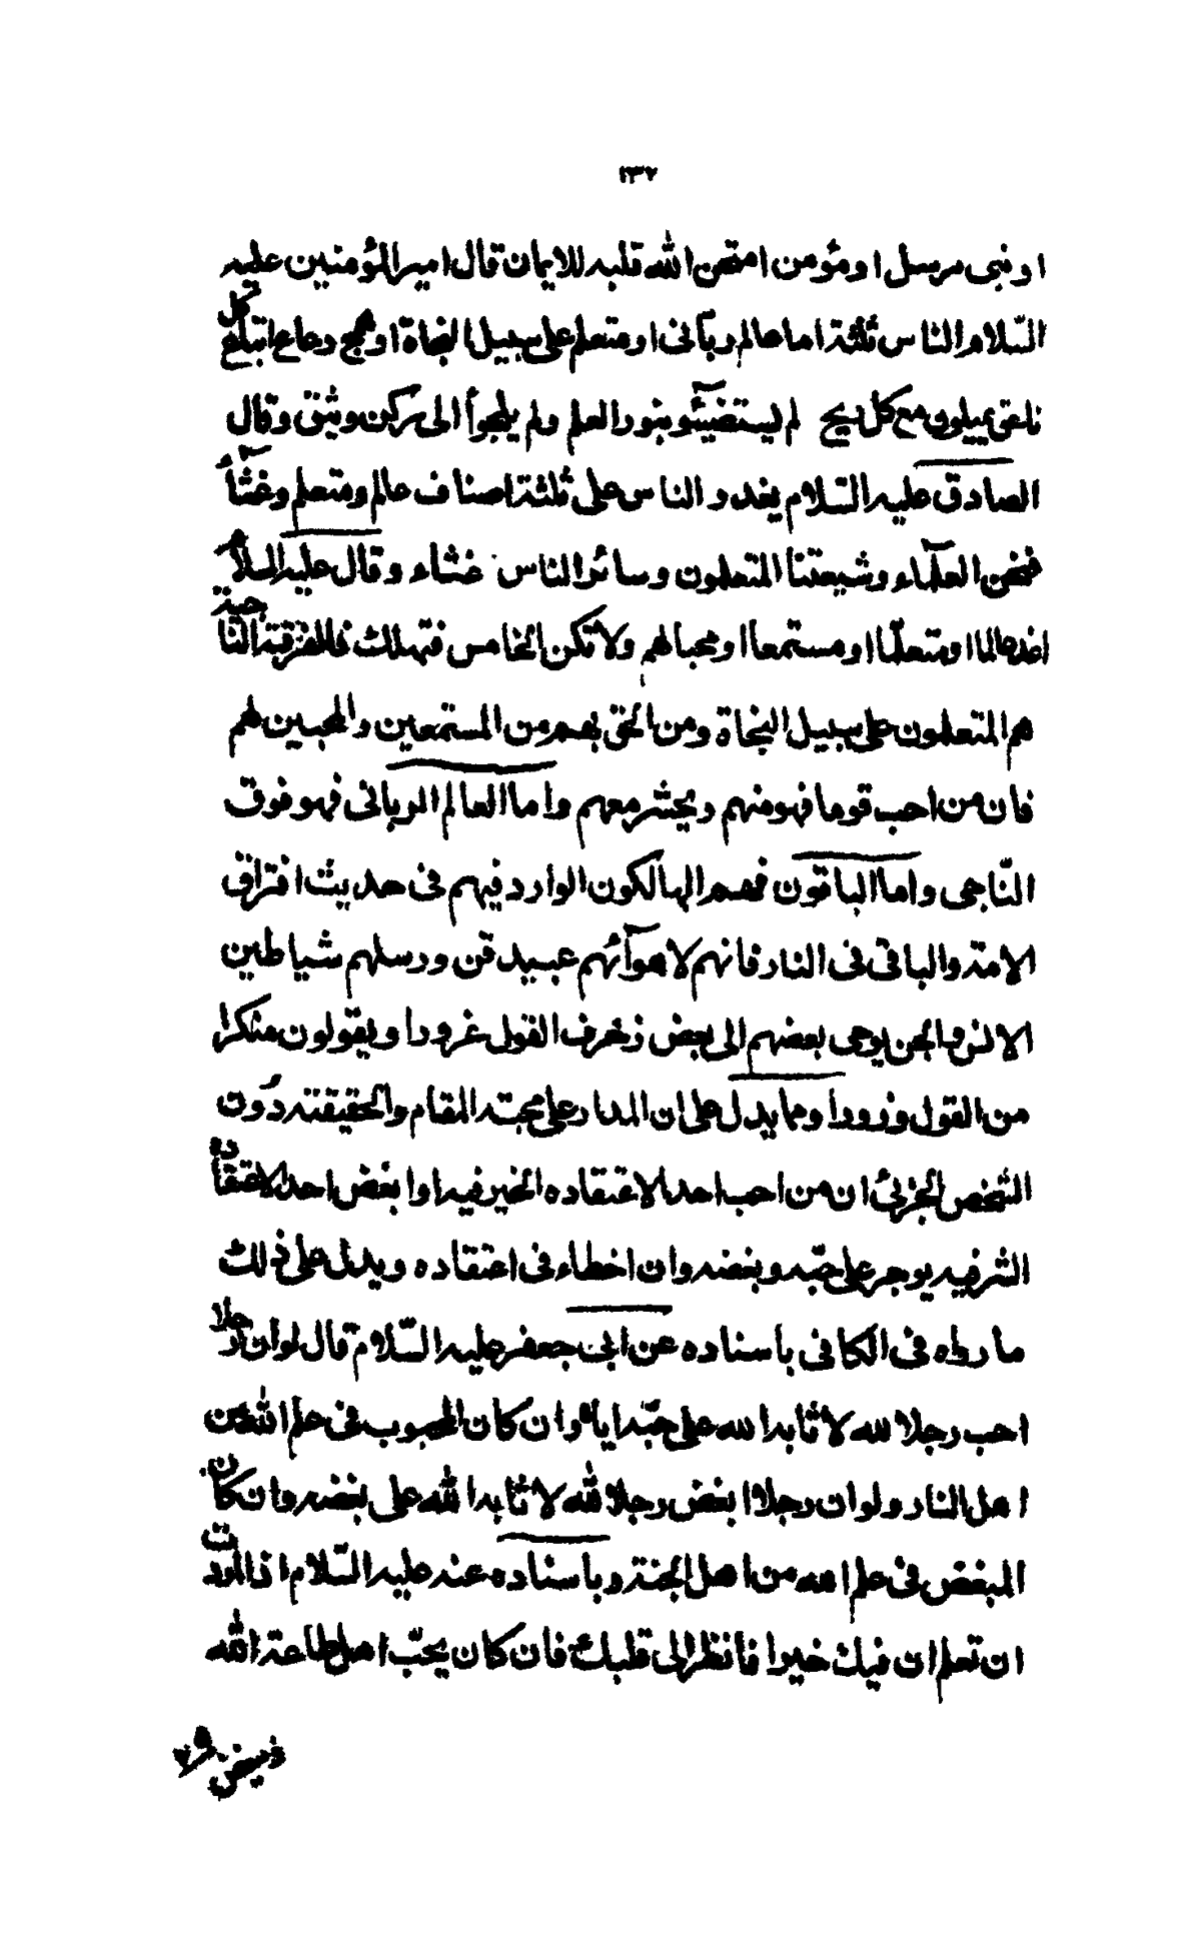 ١٣٧
او نبى مرسل او مؤمن امتحن الله قلبه للايمان قال امير المؤمنين عليه
السّلام الناس ثلثة اما عالم ربّانى او متعلم على سبيل النجاة او همج رعاع اتباع كل
ناعق يميلون مع كل ريح لم يستضيئوا بنور العلم ولم يلجوأ الى ركن وثيق وقال
الصادق عليه السّلام يغدو الناس على ثلثة اصناف عالم ومتعلم وغثآء
فنحن العلمآء وشيعتنا المتعلمون وسائر الناس غثاء وقال عليه السلام
اغد عالما او متعلّما او مستمعا او محبا لهم ولا تكن الخامس فتهلك فالفرقة الناجية
هم المتعلمون على سبيل النجاة ومن الحق بهم من المستمعين والمحبين لهم
فان من احب قوما فهو منهم ويحشر معهم واما العالم الربانى فهو فوق
النّاجى واما الباقون فهم الهالكون الوارد فيهم فى حديث افتراق
الامة والباقى فى النار فانهم لاهوآئهم عبيد قن ورسلهم شياطين
الانس والجن يوحى بعضهم الى بعض زخرف القول غرورا ويقولون منكرا
من القول وزورا ومما يدل على ان المدار على محبة المقام والحقيقة دون
الشخص الجزئى ان من احب احدا لاعتقاده الخير فيه او ابغض احدا لاعتقاده
الشر فيه يوجر على حبّه وبغضه وان اخطاء فى اعتقاده ويدل على ذلك
ما رواه فى الكافى باسناده عن ابى جعفر عليه السّلام قال لو ان رجلا
احب رجلا لله لاثابه الله على حبّه اياه وان كان المحبوب فى علم الله من
اهل النار ولو ان رجلا ابغض رجلا لله لاثابه الله على بغضه وان كان
المبغض فى علم الله من اهل الجنة وباسناده عنه عليه السّلام اذا اردت
ان تعلم ان فيك خيرا فانظر الى قلبك فان كان يحبّ اهل طاعة الله